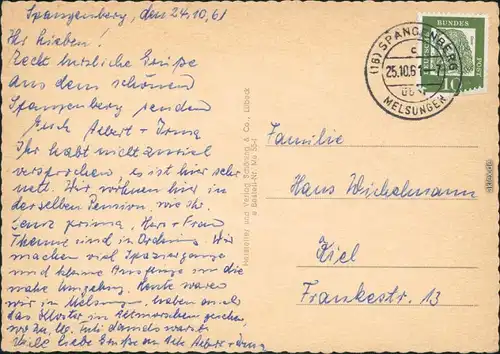 Spangenberg, den 24.10.61
Ihr Lieben!
Recht herzliche Grüße
aus dem schönen
Spangenberg senden
Euch Albert + Irma
Ihr habt nicht zuviel
versprochen, es ist hier sehr
nett. Wir wohnen hier in
derselben Pension, wie ihr.
ganz prima, Herr + Frau
Thomme sind in Ordnung. Wir
machen viel Spaziergänge
und kleine Ausflüge in die
nahe Umgebung. Heute waren
wir in Melsungen, haben auch
das Kloster in gesehen,
wo Du, damals warst.
Viele liebe Grüße an Albert + Irma
Hersteller und Verlag Schöning & Co., Lübeck
Bestell-Nr.
(16) SPANGENBERG
c
25.10.61
MELSUNGEN
DEUTSCHE BUNDESPOST
10
Familie
Hans Wichelmann
Kiel
Frankestr. 13